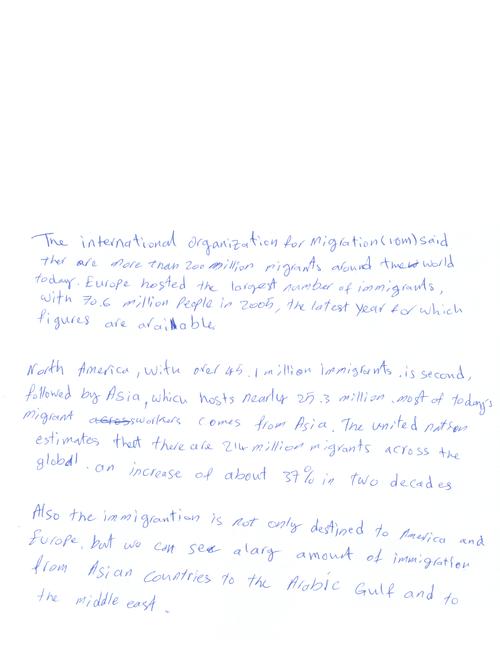 The international organization for Migration (IOM) said
ther are more than 200 million migrants around the world
today. Europe hosted the largest number of immigrants,
with 70.6 million People in 2005, the latest year for which
figures are available.
North America, with over 45.1 million immigrants . is second,
followed by Asia, which hosts nearly 25.3 million . most of today's
migrant workers comes from Asia. The united nation
estimates that there are 214 million migrants across the
global . an increase of about 37% in two decades
Also the immigrantion is not only destined to America and
Europe, but we can see a larg amount of immigration
from Asian Countries to the Arabic Gulf and to
the middle east .